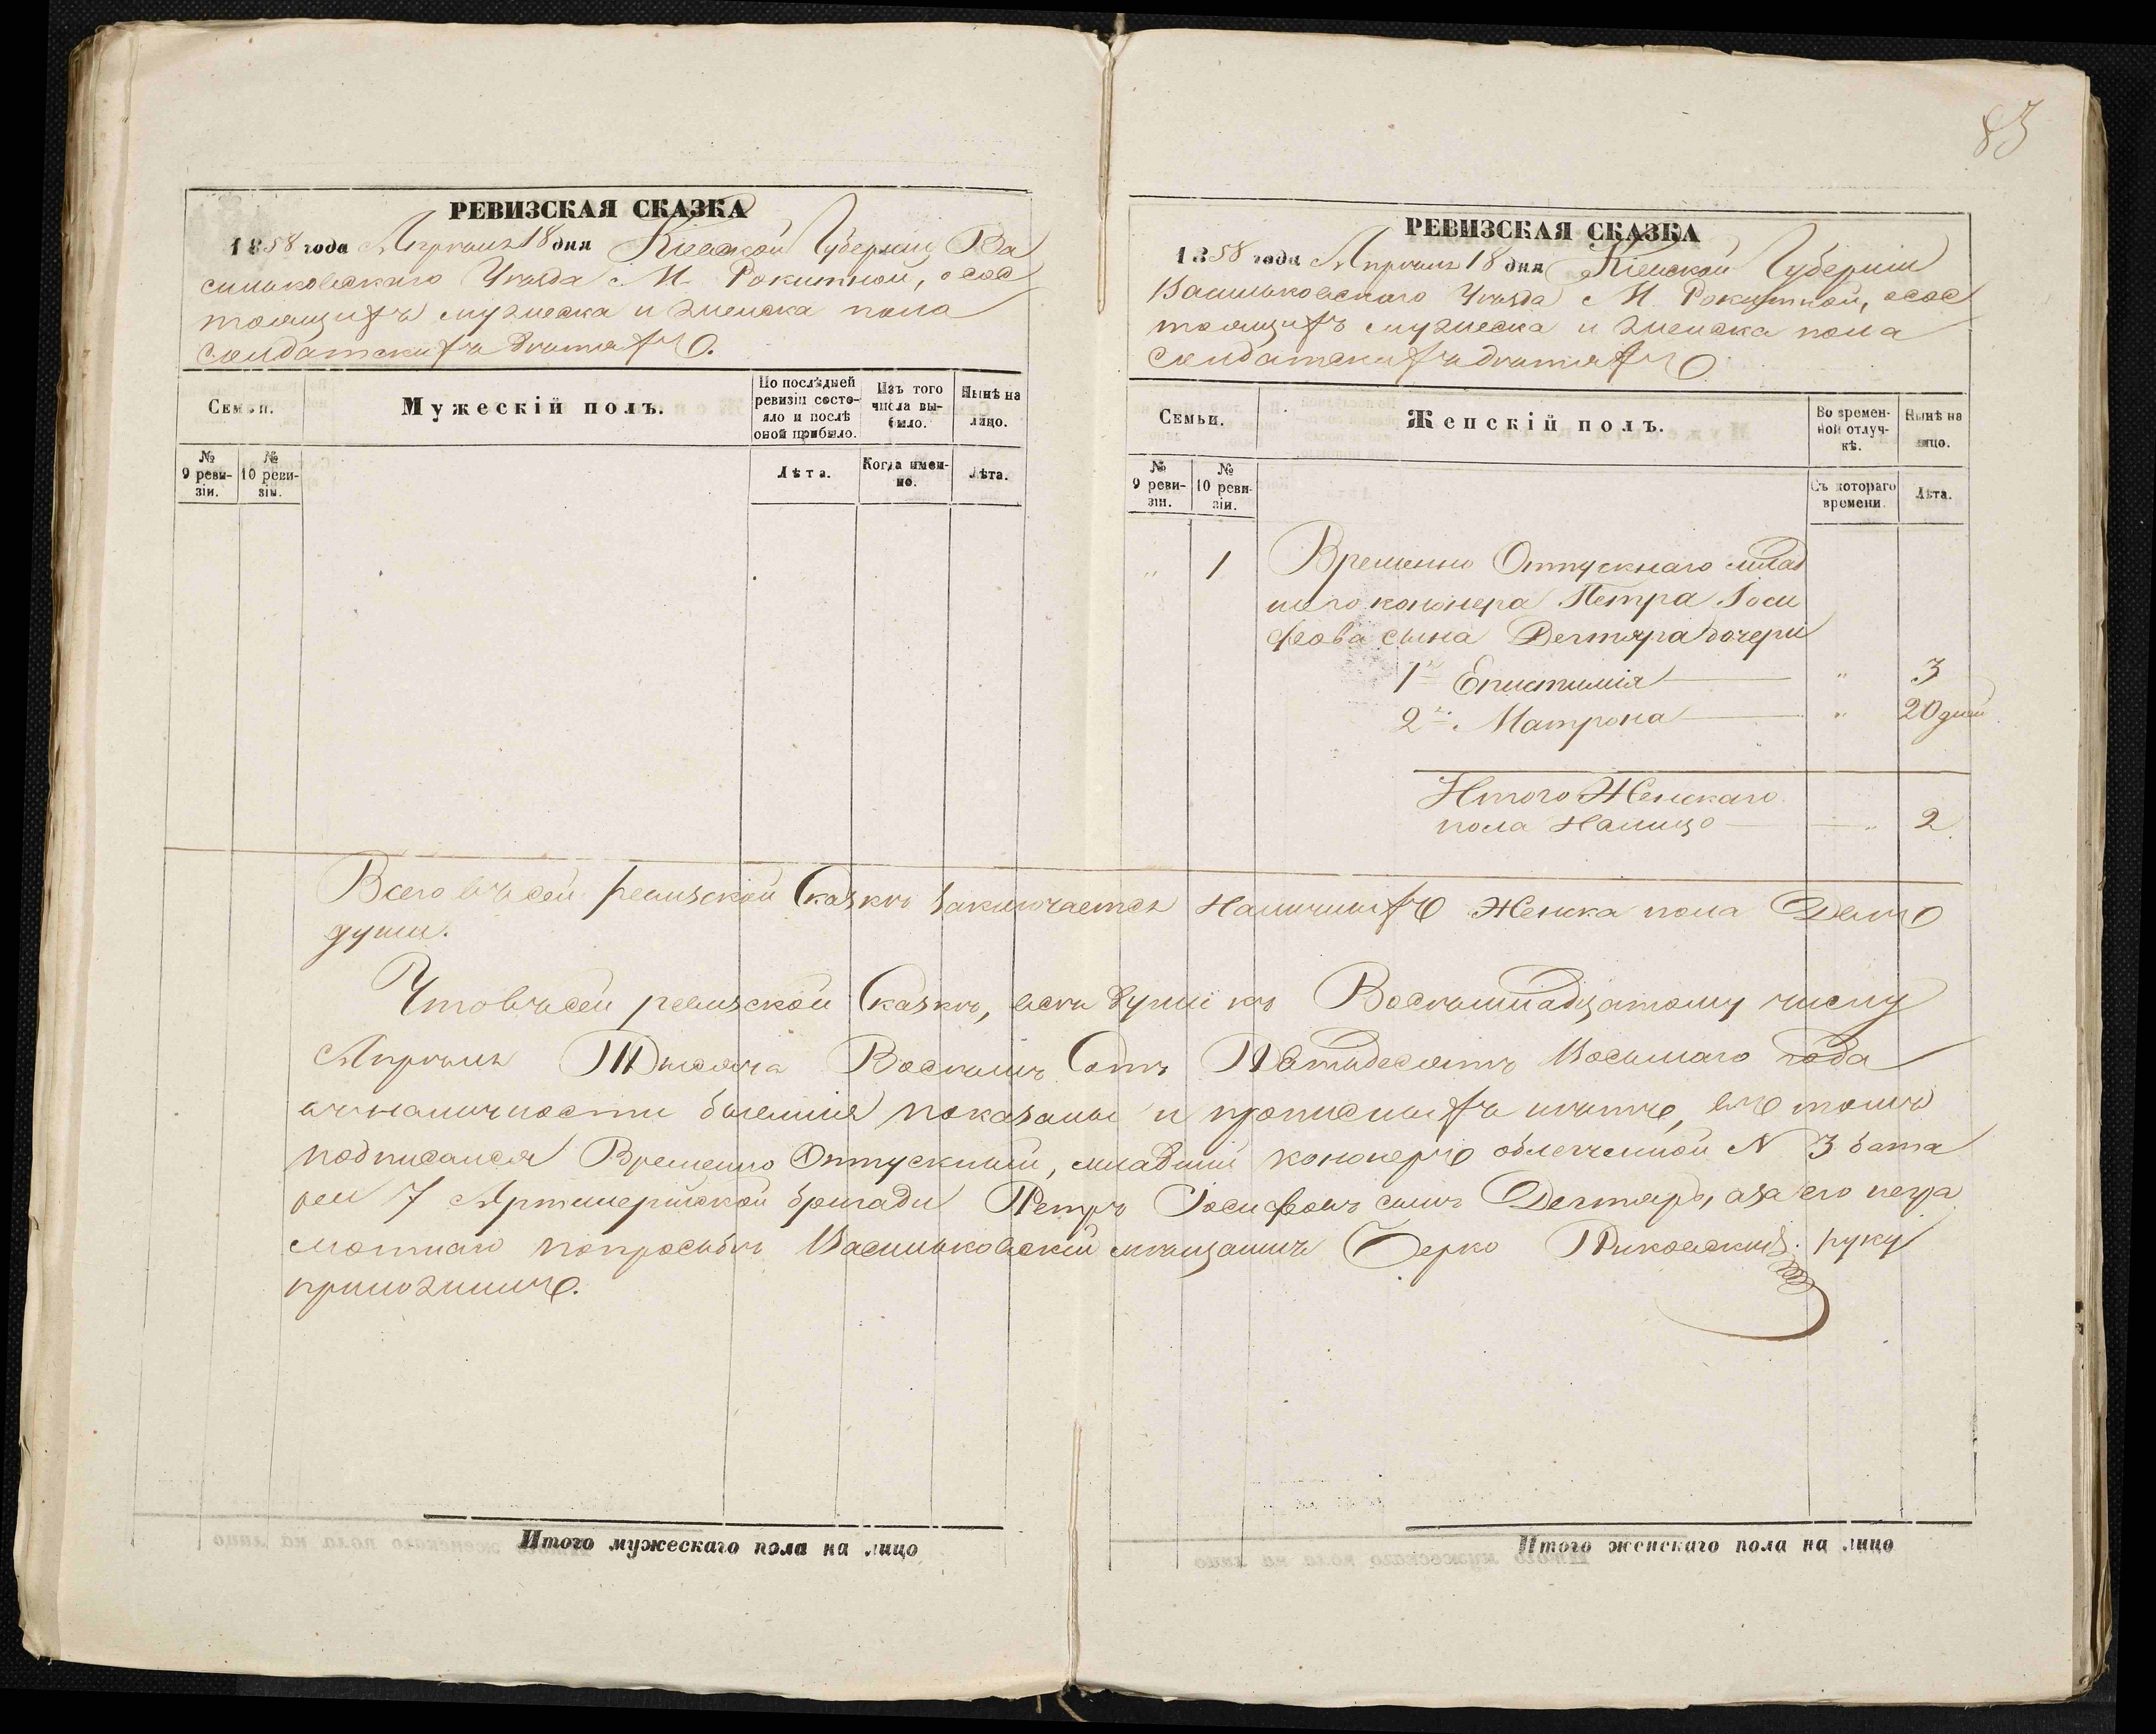 83
РЕВИЗСКАЯ СКАЗКА
1858 года Апрѣля 18 дня Кіевской Губерніи Ва
сильковскаго Уѣзда М. Рокитной, о сос
тоящихъ мужеска и женска пола
Солдатскихъ дѣтяхъ.
Семьи.
Мужескій полъ.
По послѣдней ревизіи состояло и послѣ оной прибыло.
Изъ того числа выбыло.
Нынѣ на лицо.
№ 9 ревизіи.
№ 10 ревизіи.
Лѣта.
Когда именно.
Лѣта.
РЕВИЗСКАЯ СКАЗКА
1858 года Апрѣля 18 дня Кіевской Губерніи
Васильковскаго Уѣзда М. Рокитной, о сос
тоящихъ мужеска и женска пола
Солдатскихъ дѣтяхъ
Семьи.
Женскій полъ.
Во временной отлучкѣ.
Нынѣ на лицо.
№ 9 ревизіи.
№ 10 ревизіи.
Съ котораго времени.
Лѣта.
" 1 Временно Отпускнаго млад
шего кононера Петра Іоси
фова сына Дегтяра дочери
1я Епистимія " 3
2я Матрона " 20 дней
Итого Женскаго
пола Налицо " 2
Всего въ сей ревизской Сказкѣ заключается Наличныхъ Женска пола Двѣ
души.
Что въ сей ревизской Сказкѣ, всѣ души къ Восѣмнадцатому числу
Апрѣля Тысяча Восѣмь Сотъ Пятидесятъ Восьмаго года
въ наличности бывшие показаны и прописныхъ нѣтъ, въ томъ
подписался Временно Отпускный, младший кононеръ облегченной N 3 бата
реи 7 Артилерійской бригады Петръ Іосифовъ сынъ Дегтяръ, а за его негра
мотнаго по просьбѣ Васильковский мѣщанинъ Берко руку
приложилъ.
Итого мужескаго пола на лицо
Итого женскаго пола на лицо